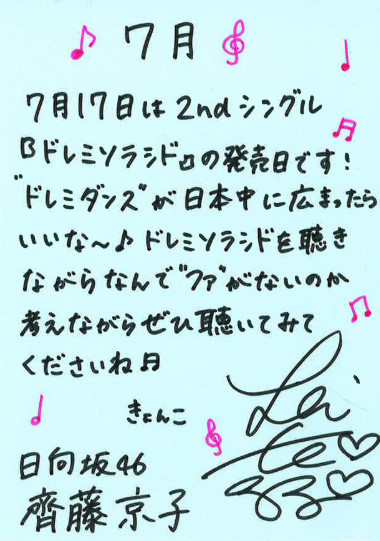 7月
7月17日は2ndシングル
『ドレミソラシド』の発売日です!
"ドレミダンス"が日本中に広まったら
いいな〜♪ドレミソラシドを聴き
ながらなんで"ファ"がないのか
考えながらぜひ聴いてみて
くださいね♬
きょんこ
日向坂46
齊藤京子